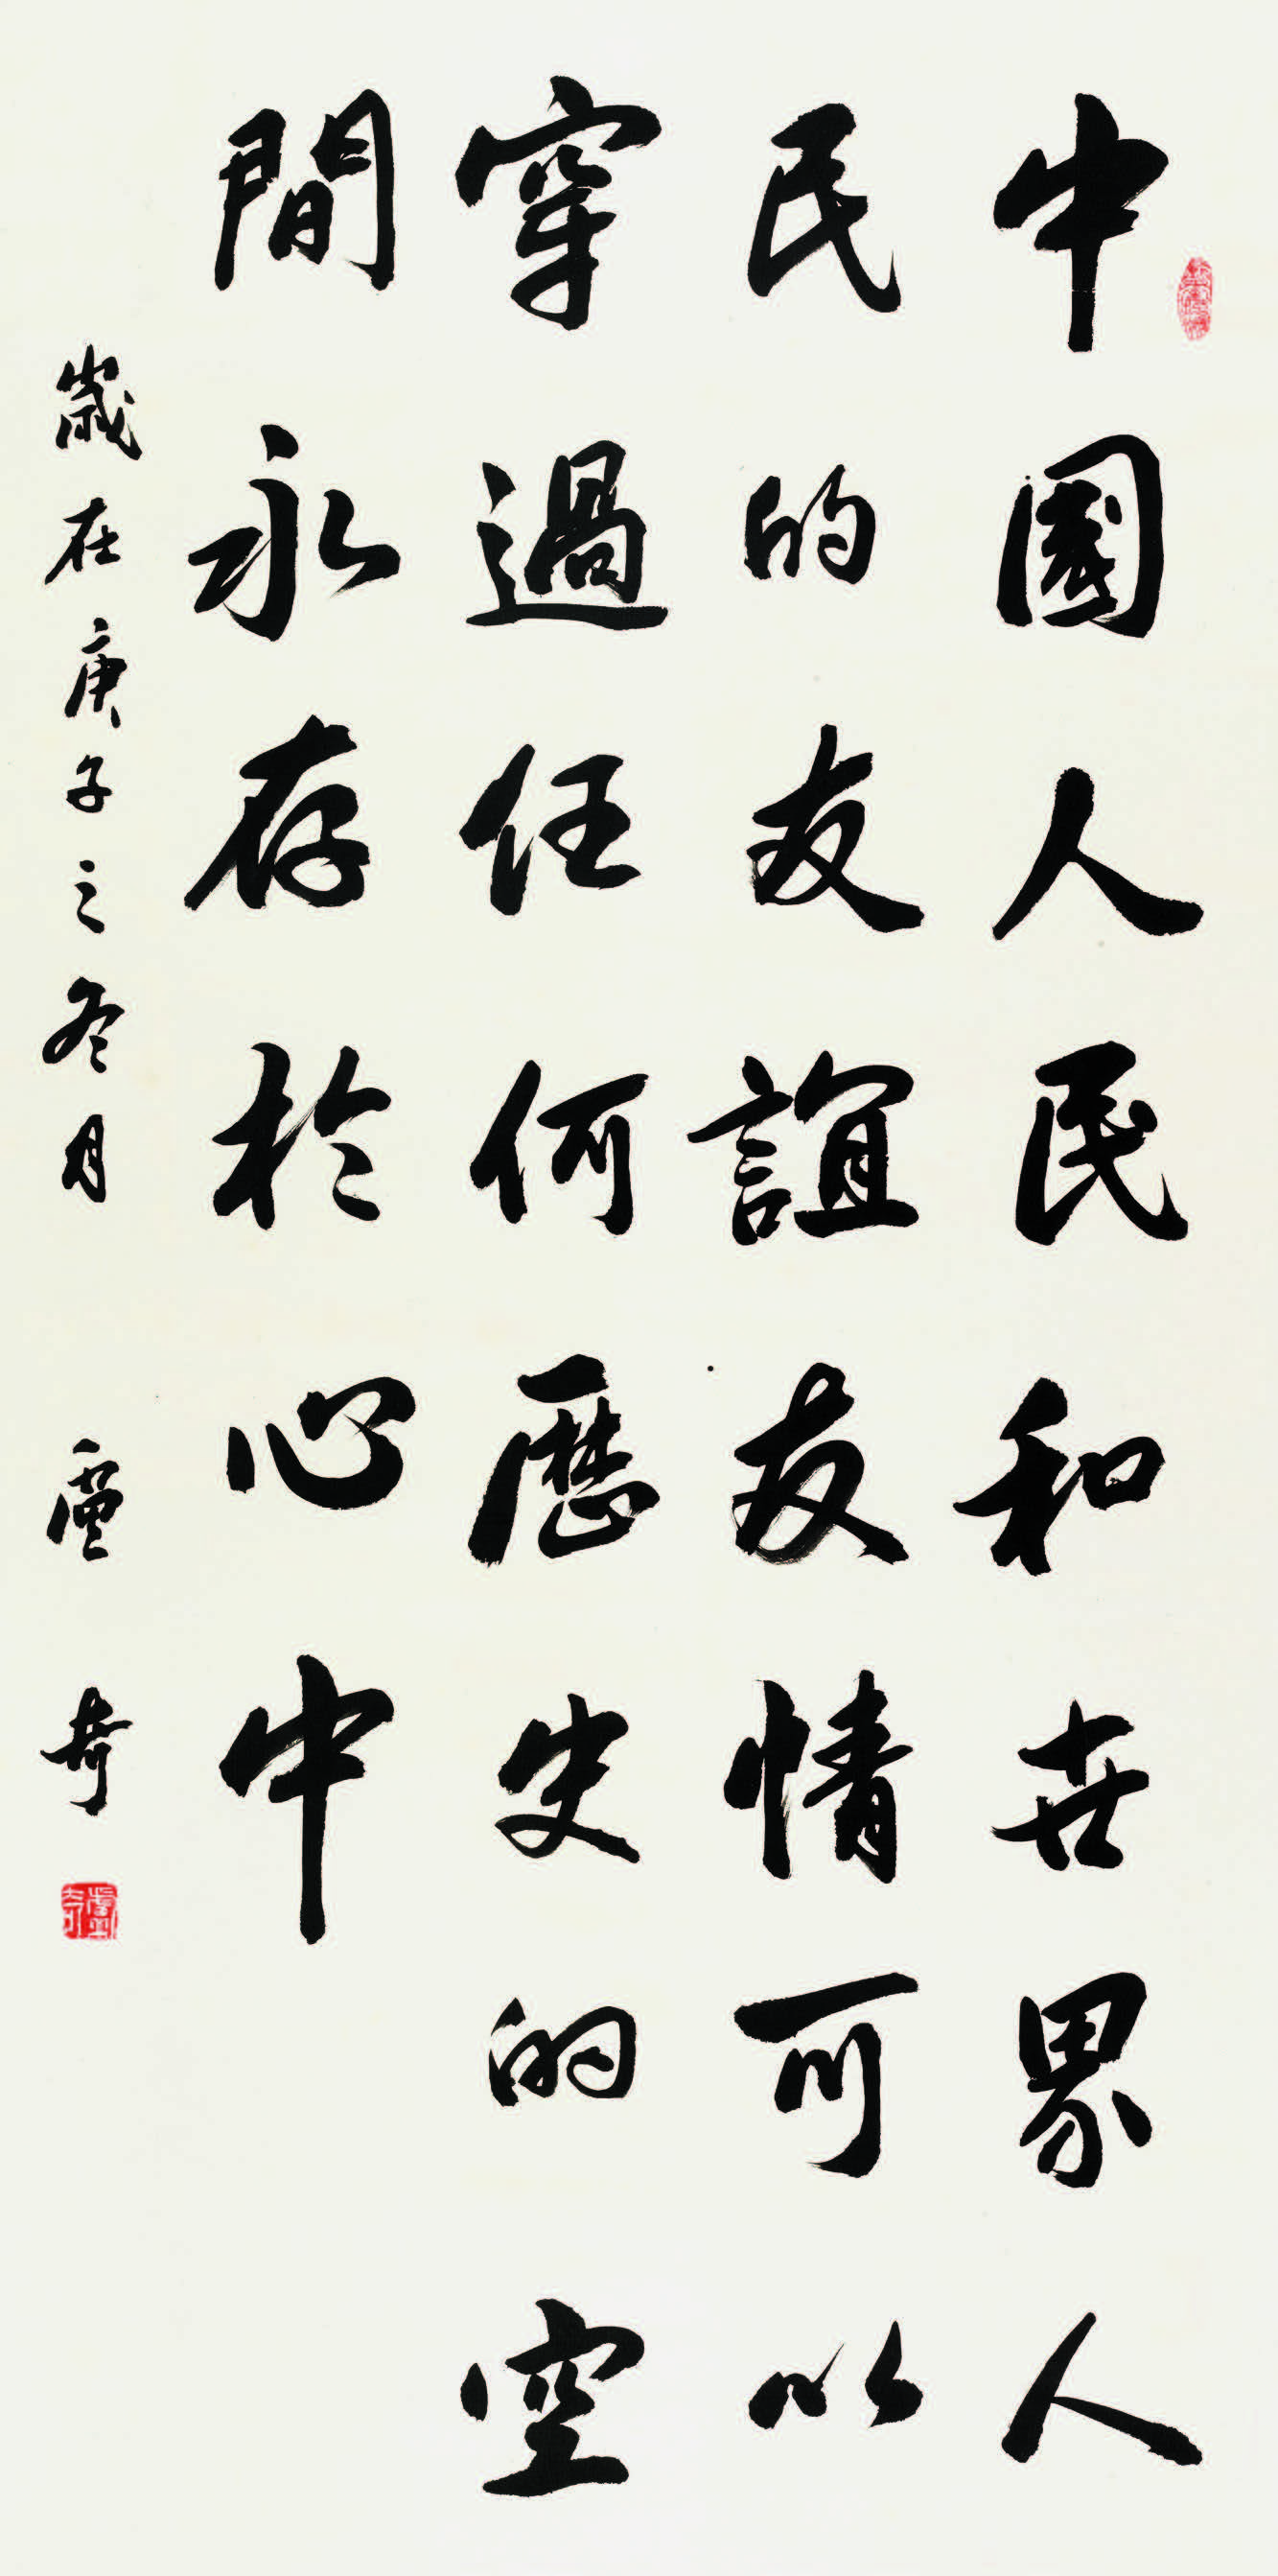 中國人民和世界人
民的友誼友情可以
穿過任何歷史的空
間永存於心中
歲在庚子之冬月 盧奇
盧奇